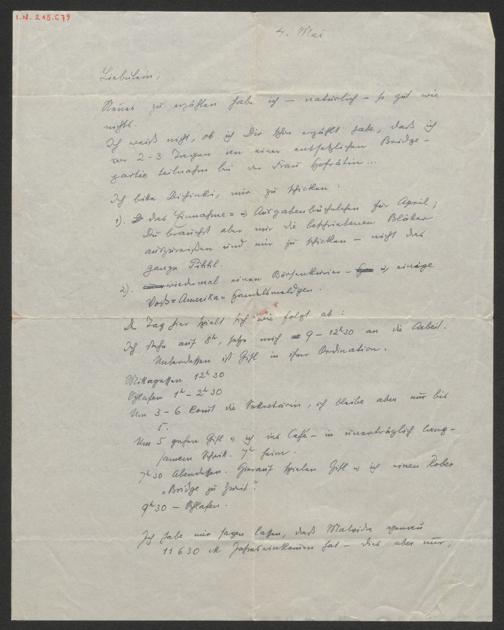 I.N. 218.679
4. Mai
Liebulein,
Neues zu erzählen habe ich – natürlich – so gut wie
nichts.
Ich weiß nicht, ob ich Dir schon erzählt habe, daß ich
vor 2-3 Tagen an einer entsetzlichen Bridge-
partie teilnahm bei der Frau Hofrätin ...
Ich bitte Dich, mir zu schicken:
1). das Einnahme= u Ausgabenbüchelchen für April;
Du brauchst aber nur die beschriebenen Blätter
auszureißen und mir zu schicken – nicht das
ganze
2). wiedermal einen Börsenkurier – u einige
Handelsmeldgen.
Der Tag hier spielt sich wie folgt ab:
Ich stehe auf 8h, setze mich 9 – 12h30 an die Arbeit.
Unterdessen ist in ihrer Ordination.
Mittagessen 12h30
Schlafen 1h – 2h30
Um 3-6 kommt die Sekretärin, ich bleibe aber nur bis
5.
Um 5 gehen u ich ins Café – in unerträglich lang-
samem Schritt. 7h heim.
7h30 Abendessen. Hierauf spielen u ich einen Rober
„Bridge zu zweit".
9h30 – Schlafen.
Ich habe mir sagen lassen, daß genau
11 630 M Jahreseinkommen hat – dies aber nur,